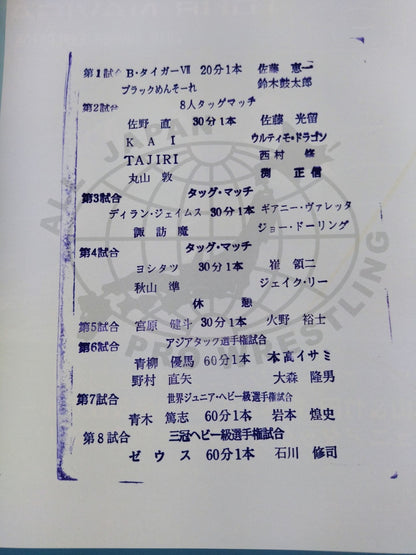 第1試合 B・タイガーⅦ 20分1本 佐藤 恵一
ブラックめんそーれ 鈴木鼓太郎
第2試合 8人タッグマッチ
佐野 直 30分1本 佐藤 光留
KAI ウルティモ・ドラゴン
TAJIRI 西村 修
丸山 敦 渕 正信
第3試合 タッグ・マッチ
ディラン・ジェイムス 30分1本 ギアニー・ヴァレッタ
諏訪魔 ジョー・ドーリング
第4試合 タッグ・マッチ
ヨシタツ 30分1本 崔 領二
秋山 準 ジェイク・リー
休 憩
第5試合 宮原 健斗 30分1本 火野 裕士
第6試合 アジアタッグ選手権試合
青柳 優馬 60分1本 本髙イサミ
野村 直矢 大森 隆男
第7試合 世界ジュニア・ヘビー級選手権試合
青木 篤志 60分1本 岩本 煌史
第8試合 三冠ヘビー級選手権試合
ゼウス 60分1本 石川 修司
ALL JAPAN
PRO WRESTLING